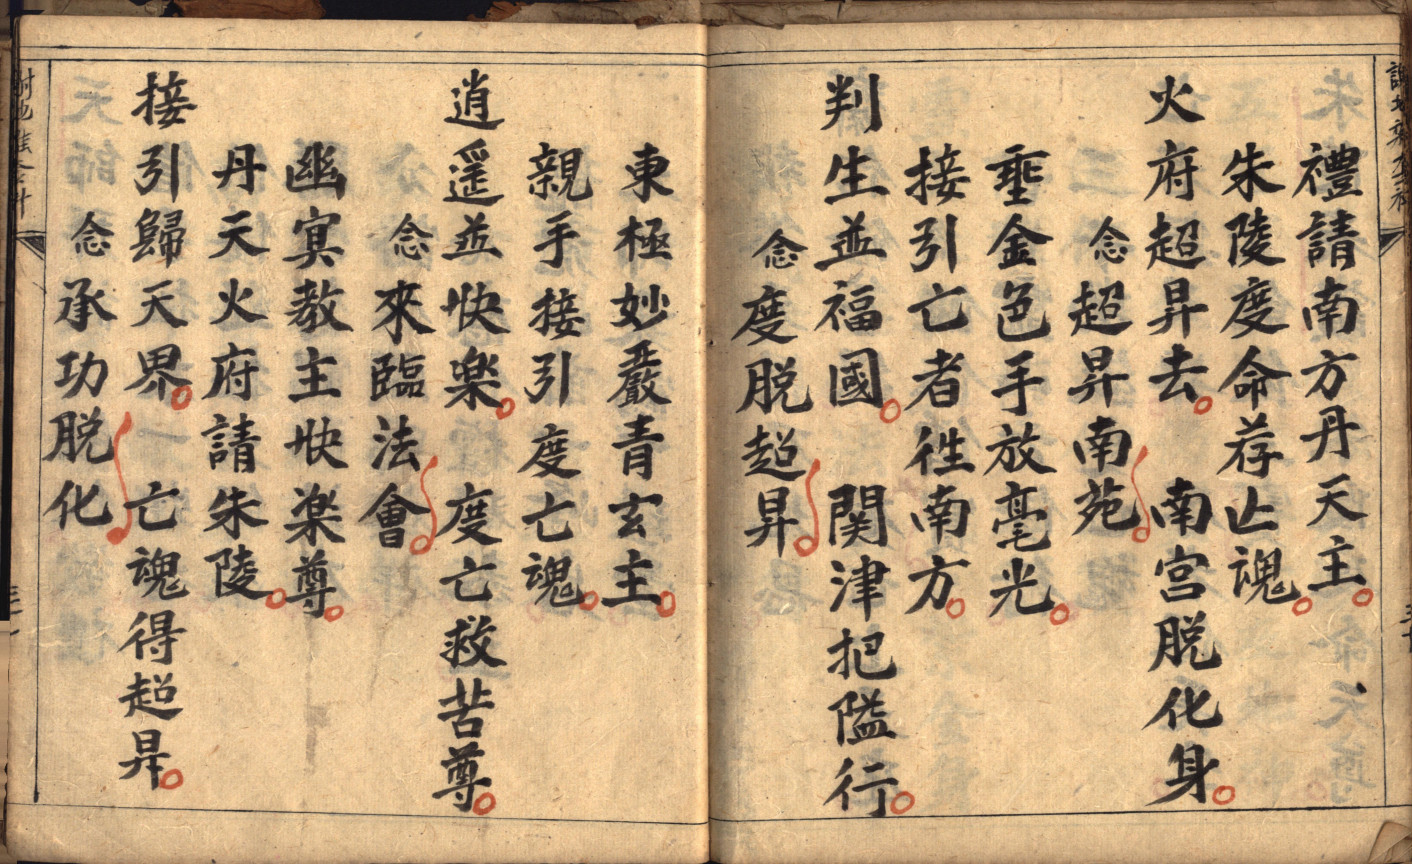 禮請南方丹天主
朱陵度命荐亡魂
火府超昇去 南宫脱化身
念超昇南苑
垂金色手放毫光
接引亡者徃南方
判生並福國 関津把隘行
念度脱超昇
東極妙嚴青玄主
親手接引度亡魂
逍遥並快楽 度亡救苦尊
念來臨法會
幽冥教主快楽尊
丹天火府請朱陵
接引歸天界 亡魂得超昇
念承功脱化